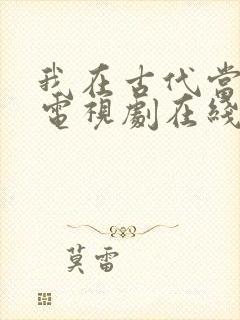 我在古代當
電視劇在綫
莫雷